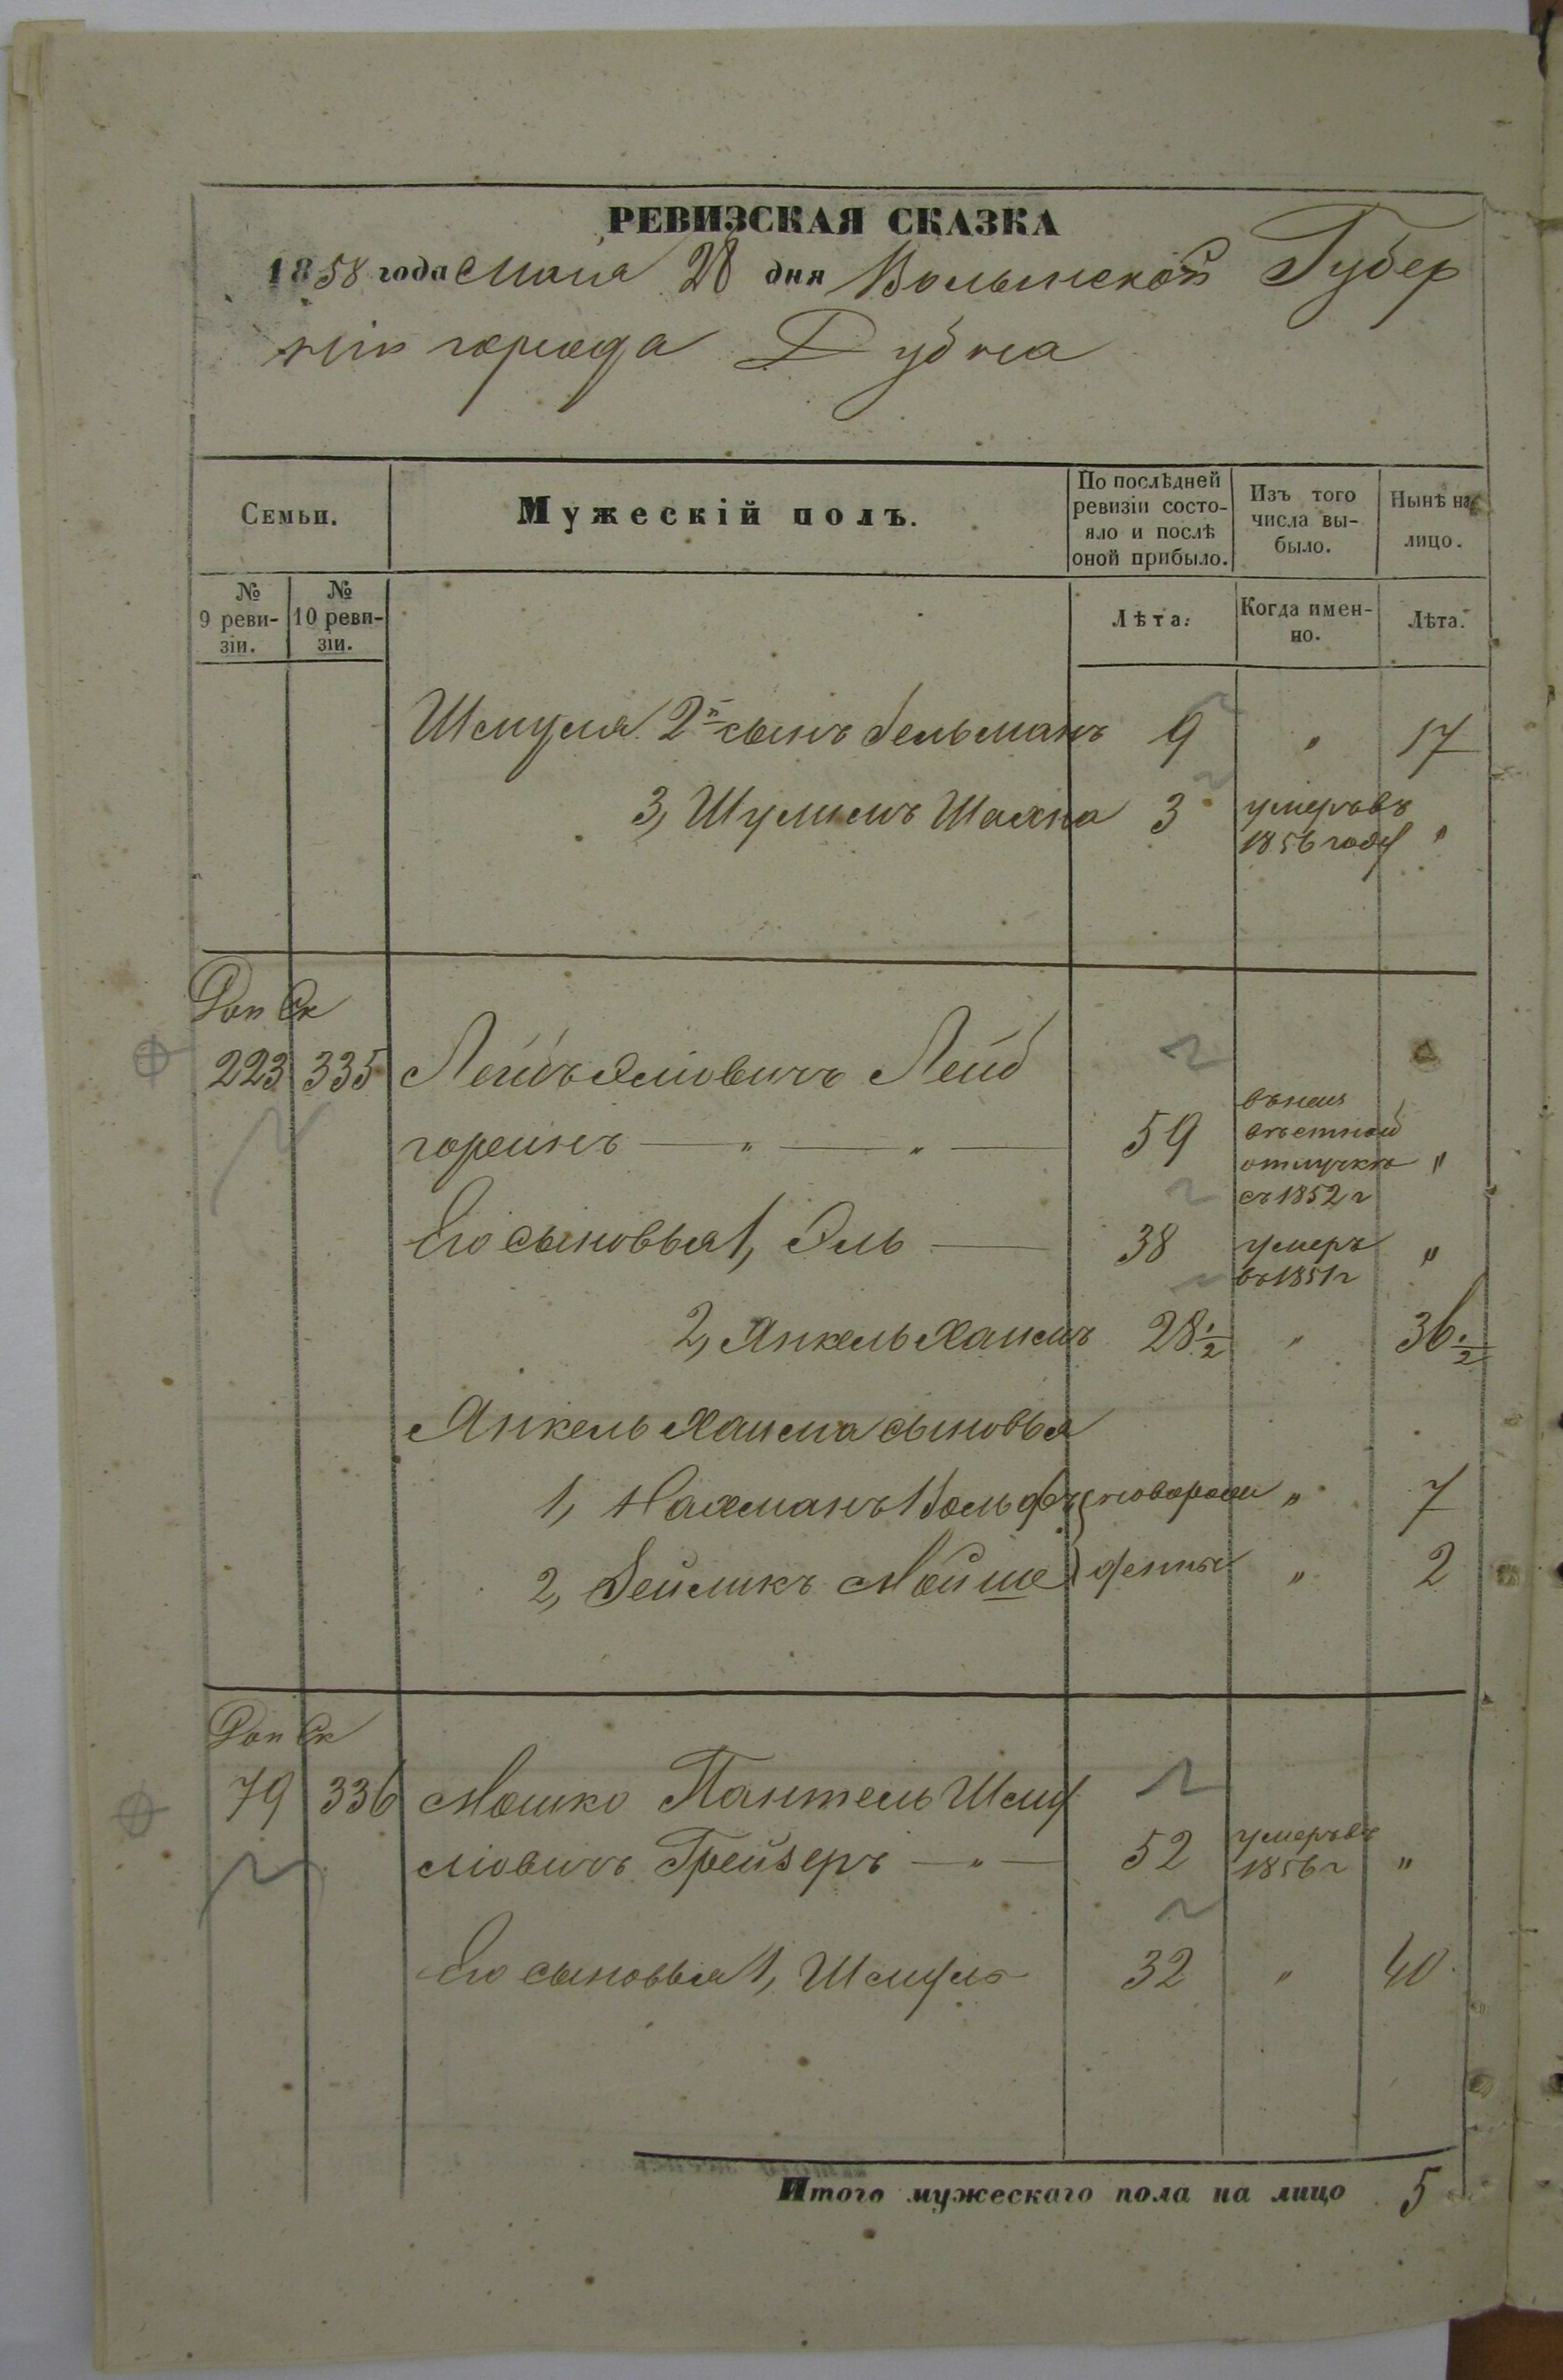 РЕВИЗСКАЯ СКАЗКА
1858 года Маія 28 дня Волынской Губер
ніи города Дубна
Семьи.
Мужескій полъ.
По послѣдней ревизіи состо-
яло и послѣ
оной прибыло.
Изъ того
числа вы-
было.
Нынѣ на
лицо.
№
9 реви-
зіи.
№
10 реви-
зіи.
Лѣта.
Когда имен-
но.
Лѣта.
Шмуля 2й сынъ Гельманъ 9 " 17
3, Шулимъ Шахна 3 умеръ въ
1856 году "
Доп Ск
223 335 Лейбъ Эліовичъ Лейб
горинъ — " — " — 59
отлучкѣ "
съ 1852 г
Его сыновья 1, Эль — 38 умеръ "
въ 1851 г
2, Янкель Хаимъ 28 1/2 " 36 1/2
Янкель Хаима сыновья
1, Нахманъ Вольфъ новорож " 7
2, Зейликъ Мойше денны " 2
Доп Ск
79 336 Мошко Пантель Шму
ліовичъ Грейзеръ — " — 52 умеръ въ
1856 г "
Его сыновья 1, Шмуль 32 " 40
Итого мужескаго пола на лицо 5